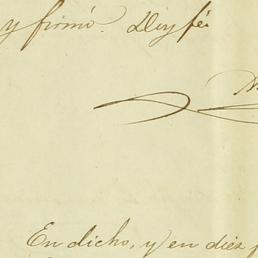 y firmó. Doy fé
En dicho, y en diez